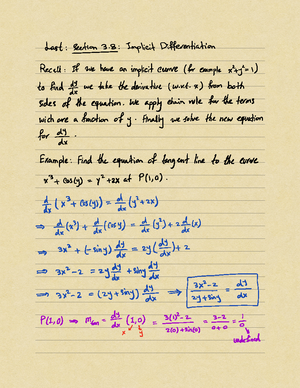 Last: Section 3.8: Implicit Differentiation
Recall: If we have an implicit curve (for example x²+y²=1)
to find dy/dx we take the derivative (w.r.t. x) from both
sides of the equation. We apply chain rule for the terms
wich are a function of y. Finally we solve the new equation
for dy/dx.
Example: Find the equation of tangent line to the curve
x³ + cos(y) = y² + 2x at P(1,0).
d/dx (x³ + cos(y)) = d/dx (y² + 2x)
⇒ d/dx (x³) + d/dx (cos(y)) = d/dx (y²) + 2 d/dx (x)
⇒ 3x² + (-sin y) dy/dx = 2y (dy/dx) + 2
⇒ 3x² - 2 = 2y dy/dx + sin y dy/dx
⇒ 3x² - 2 = (2y + sin y) dy/dx ⇒ (3x² - 2)/(2y + sin y) = dy/dx
P(1,0) ⇒ m_tan = dy/dx (1,0) = (3(1)² - 2)/(2(0) + sin(0)) = (3-2)/(0+0) = 1/0
x y undefined